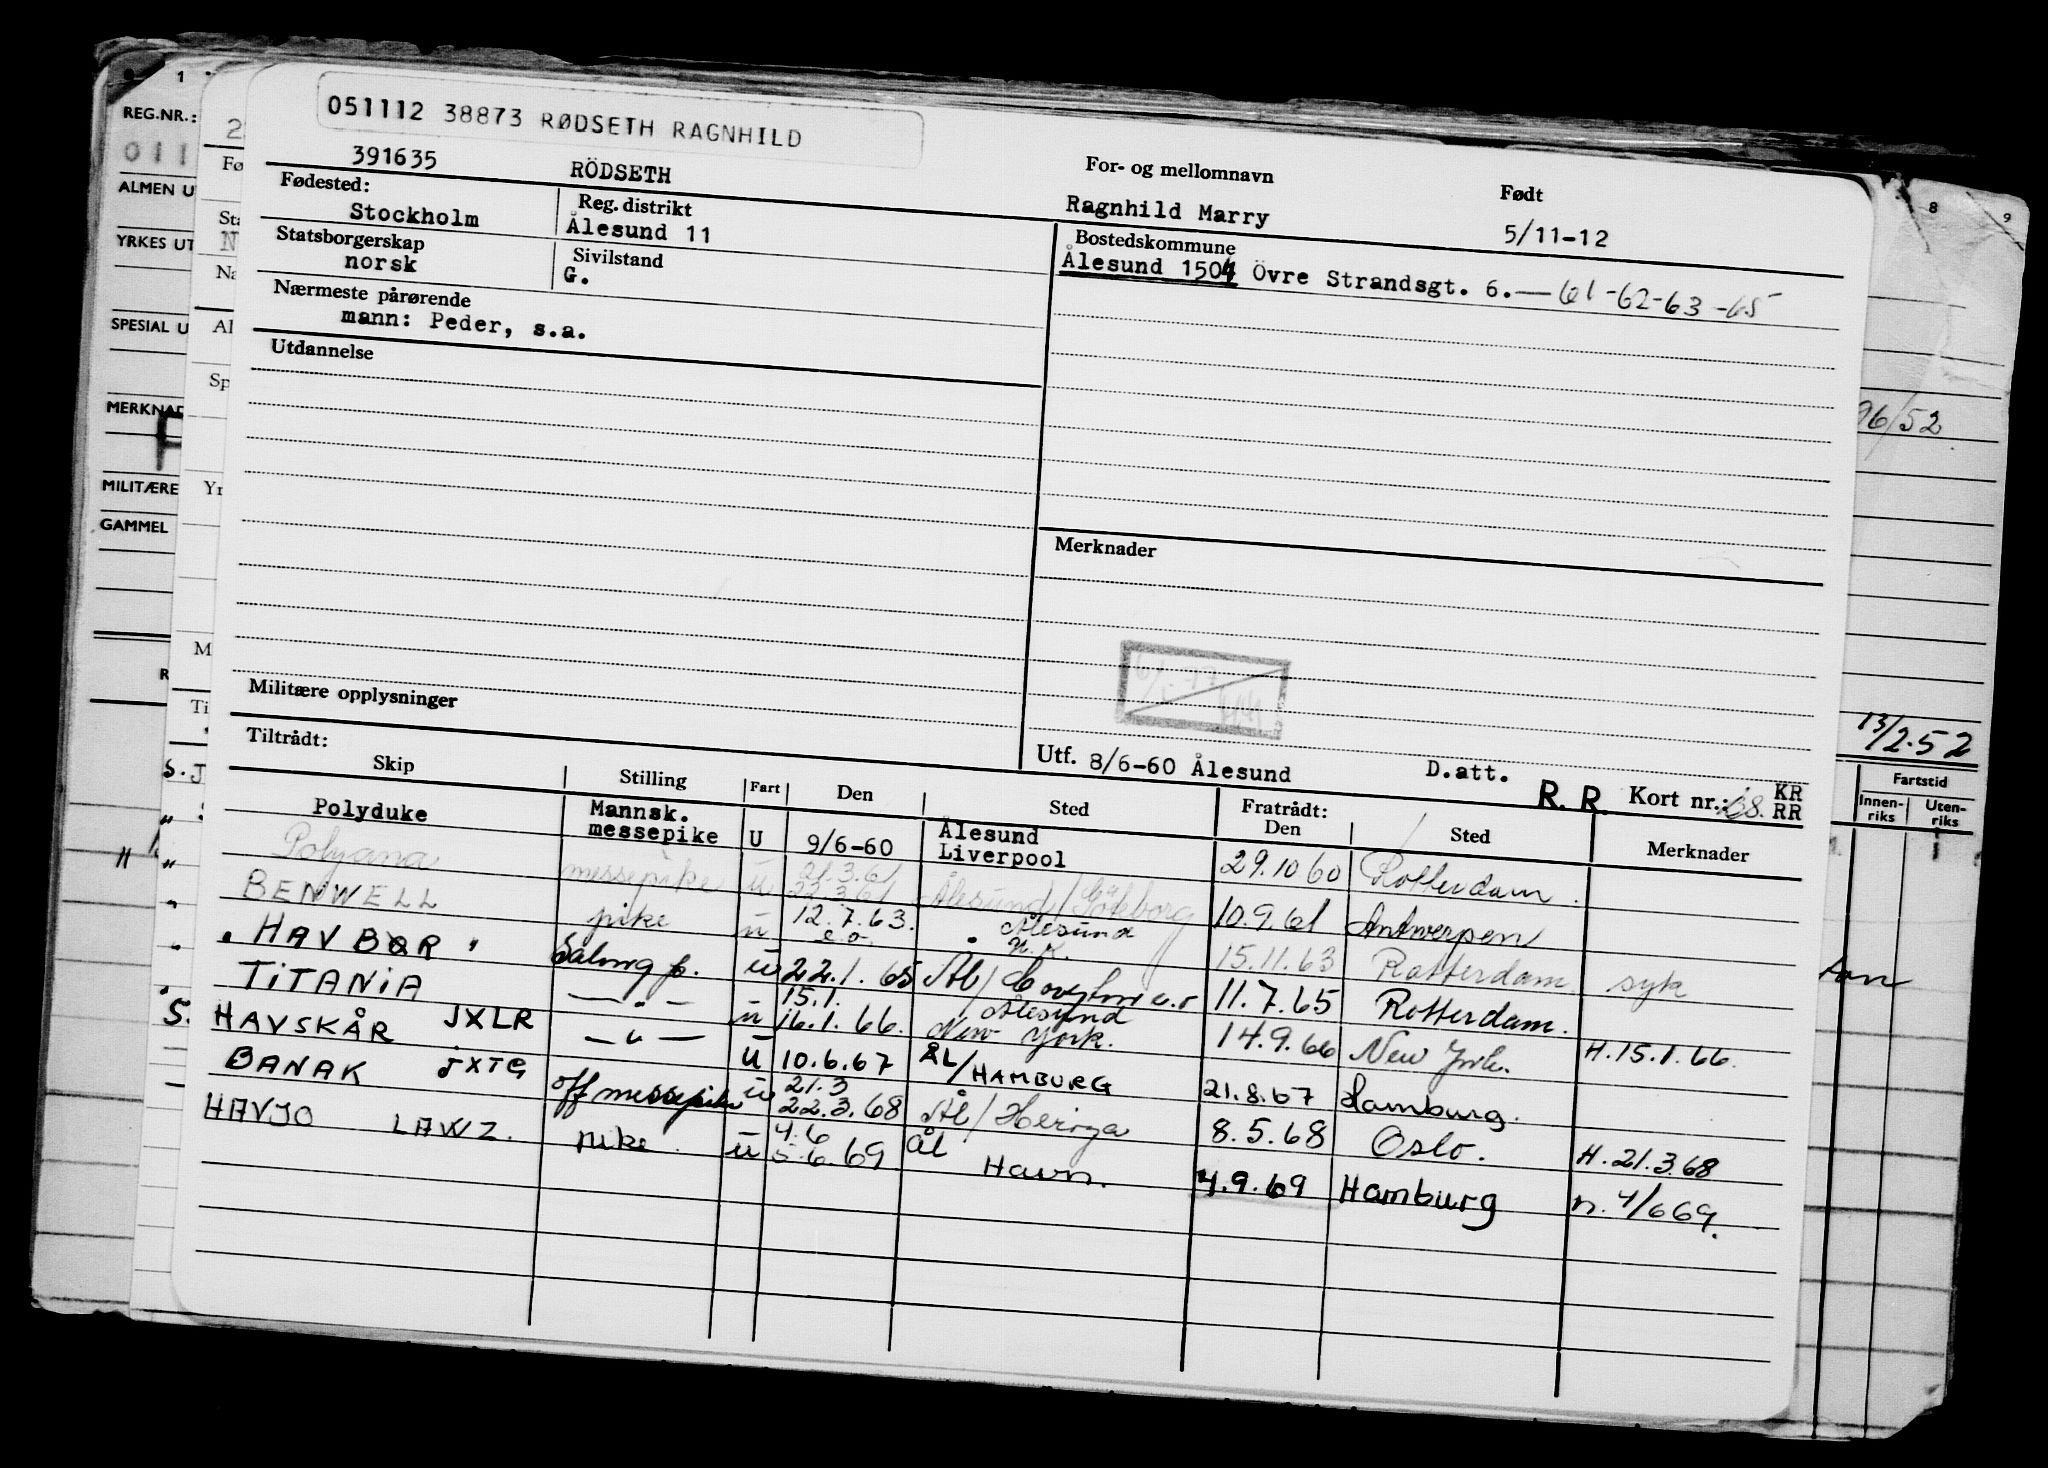 051112 38873 RØDSETH RAGNHILD
391635 RÖDSETH
For- og mellomnavn Født
Ragnhild Marry 5/11-12
Fødested: Reg. distrikt
Stockholm Ålesund 11
Statsborgerskap Sivilstand
norsk G.
Bostedskommune
Ålesund 1504 Övre Strandsgt. 6. — 61-62-63-65
Nærmeste pårørende
mann: Peder, s.a.
Utdannelse
Merknader
Militære opplysninger
Utf. 8/6-60 Ålesund D.att. R. R. Kort nr.: KR RR
Tiltrådt:
Skip Stilling Fart Den Sted Fratrådt: Den Sted Merknader
Polyduke Mannsk. messepike U 9/6-60 Ålesund Liverpool 29.10 60 Rotterdam.
Polyana messepike u 21.3.61 22.3.61 Ålesund/Göteborg 10.9.61 Antwerpen
BENWELL pike u 12.7.63. Ålesund 15.11.63 Rotterdam syk
" HAVBØR " Salong p. u 22.1.65 Ål/ 11.7.65 Rotterdam.
TiTANiA — " — u 15.1. 16.1.66. Ålesund New York. 14.9.66 New York. H.15.1.66.
S. HAVSKÅR JXLR — " — u 10.6.67 ÅL/HAMBURG 21.8.67 Hamburg.
BANAK JXTG off messepike u 21.3 22.3.68 Ål/Herøya 8.5.68 Oslo. H.21.3.68
HAVJO LAWZ. pike. u 4.6 5.6.69 ÅL Havn. 4.9.69 Hamburg n. 4/6 69.
REG.NR.:
ALMEN U
YRKES UT
SPESIAL U
MERKNAD
MILITÆRE
GAMMEL
1
8
9
96/52
13/2.52
Fartstid
Innen-riks Uten-riks